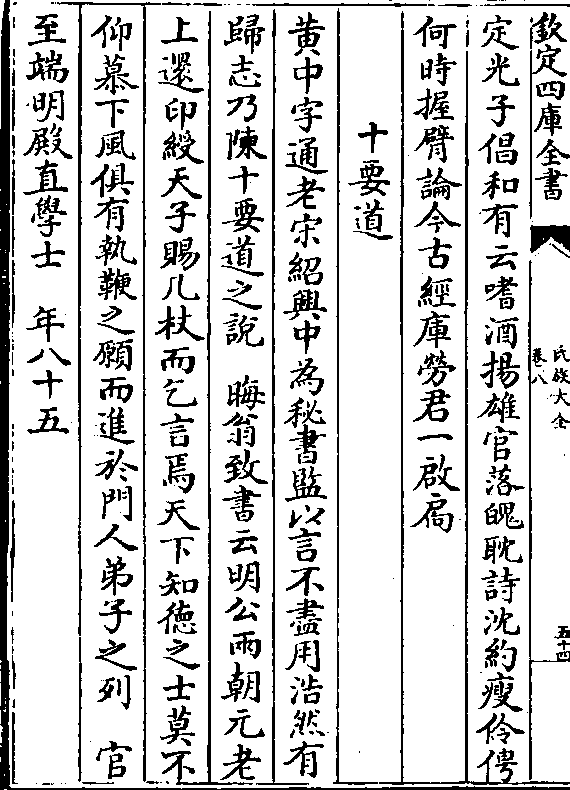 欽定四庫全書
氏族大全
卷八
五十四
定光子倡和有云嗜酒揚雄官落魄耽詩沈約瘦伶俜
何時握臂論今古經庫勞君一啟扃
十要道
黄中字通老宋紹興中為秘書監以言不盡用浩然有
歸志乃陳十要道之説　晦翁致書云明公兩朝元老
上還印綬天子賜几杖而乞言焉天下知德之士莫不
仰慕下風俱有執鞭之願而進於門人弟子之列　官
至端明殿直學士　年八十五